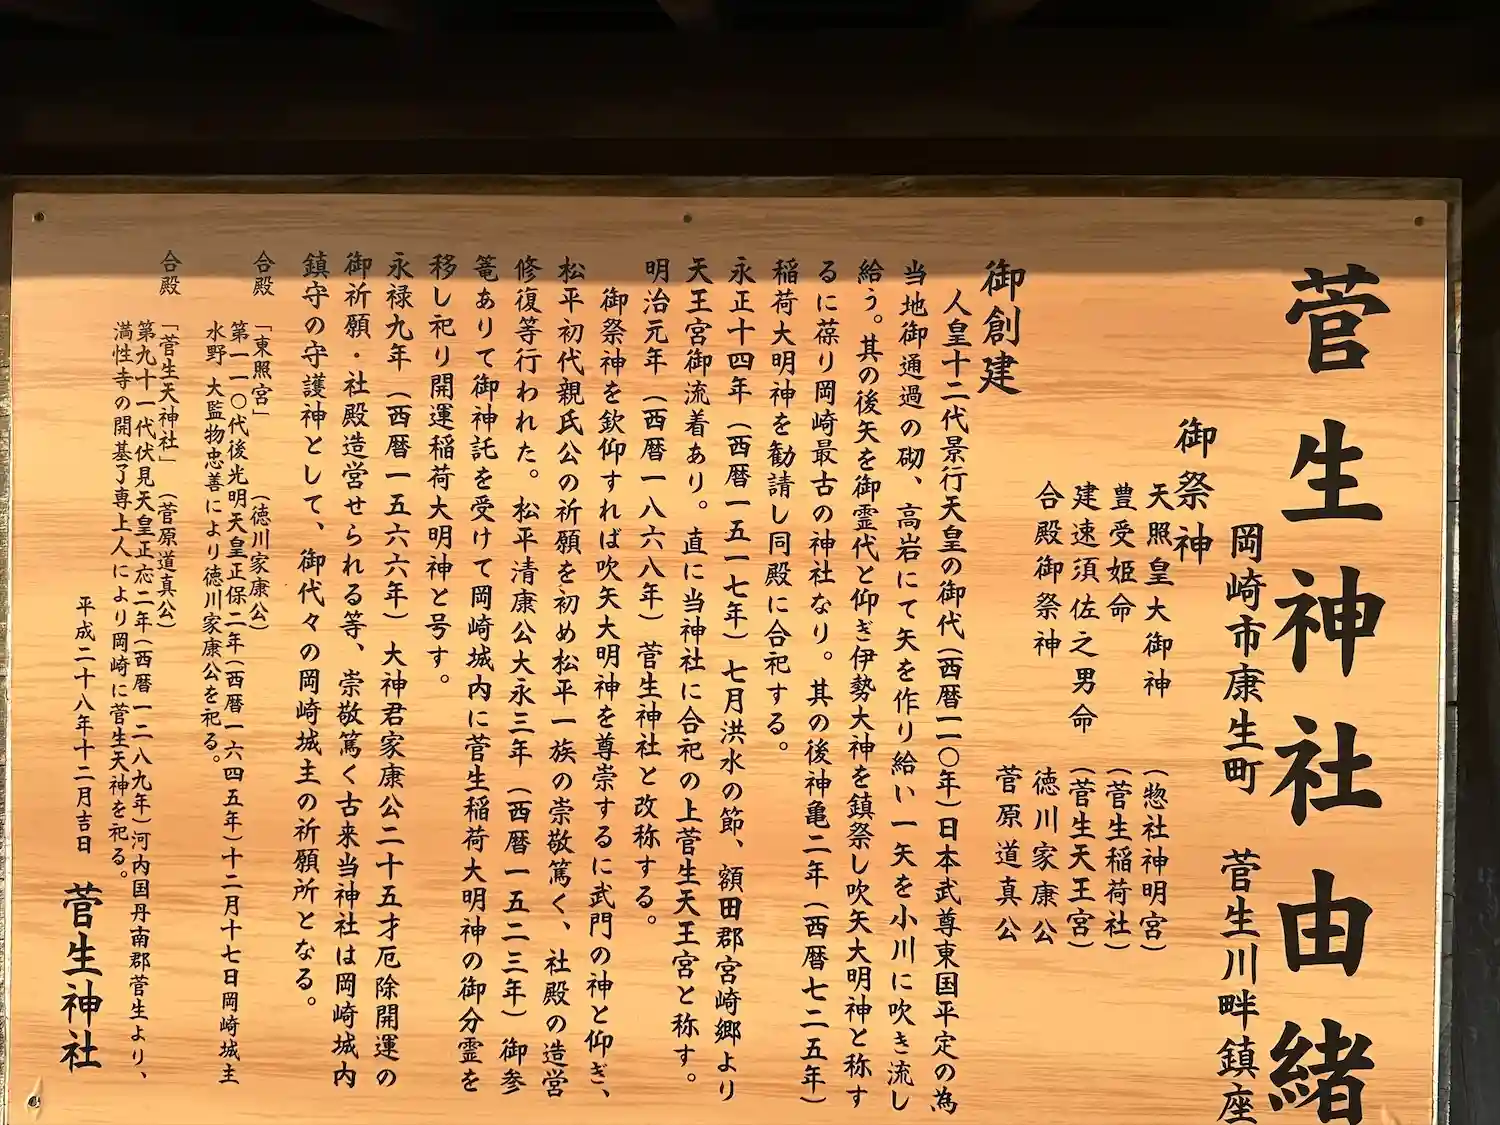 菅生神社由緒
岡崎市康生町　菅生川畔鎮座
御祭神
天照皇大御神　（惣社神明宮）
豊受姫命　（菅生稲荷社）
建速須佐之男命　（菅生天王宮）
合殿御祭神　徳川家康公
菅原道真公
御創建
人皇十二代景行天皇の御代（西暦一一〇年）日本武尊東国平定の為
当地御通過の砌、高岩にて矢を作り給い一矢を小川に吹き流し
給う。其の後矢を御霊代と仰ぎ伊勢大神を鎮祭し吹矢大明神と称す
るに葆り岡崎最古の神社なり。其の後神亀二年（西暦七二五年）
稲荷大明神を勧請し同殿に合祀する。
永正十四年（西暦一五一七年）七月洪水の節、額田郡宮崎郷より
天王宮御流着あり。直に当神社に合祀の上菅生天王宮と称す。
明治元年（西暦一八六八年）菅生神社と改称する。
御祭神を欽仰すれば吹矢大明神を尊崇するに武門の神と仰ぎ、
松平初代親氏公の祈願を初め松平一族の崇敬篤く、社殿の造営
修復等行われた。松平清康公大永三年（西暦一五二三年）御参
篭ありて御神託を受けて岡崎城内に菅生稲荷大明神の御分霊を
移し祀り開運稲荷大明神と号す。
永禄九年（西暦一五六六年）大神君家康公二十五才厄除開運の
御祈願・社殿造営せられる等、崇敬篤く古来当神社は岡崎城内
鎮守の守護神として、御代々の岡崎城主の祈願所となる。
合殿　「東照宮」　（徳川家康公）
第一一〇代後光明天皇正保二年（西暦一六四五年）十二月十七日岡崎城主
水野 大監物忠善により徳川家康公を祀る。
合殿　「菅生天神社」　（菅原道真公）
第九十一代伏見天皇正応二年（西暦一二八九年）河内国丹南郡菅生より、
満性寺の開基了専上人により岡崎に菅生天神を祀る。
平成二十八年十二月吉日　菅生神社